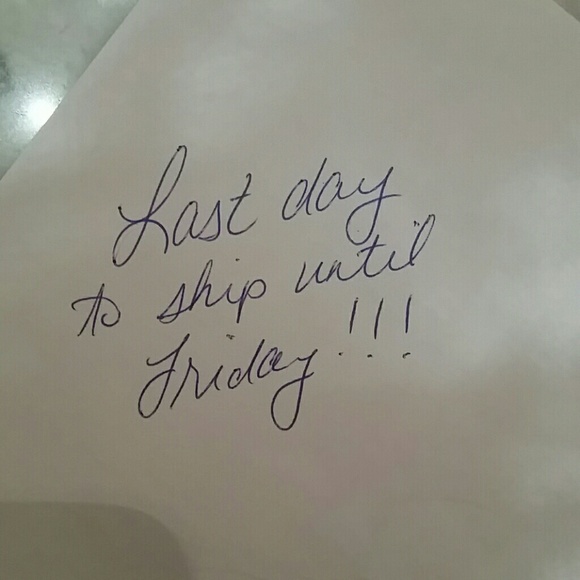 Last day
to ship until
Friday!!!